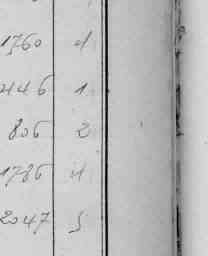 1760 1
446 1
806 2
1786 1
2047 5